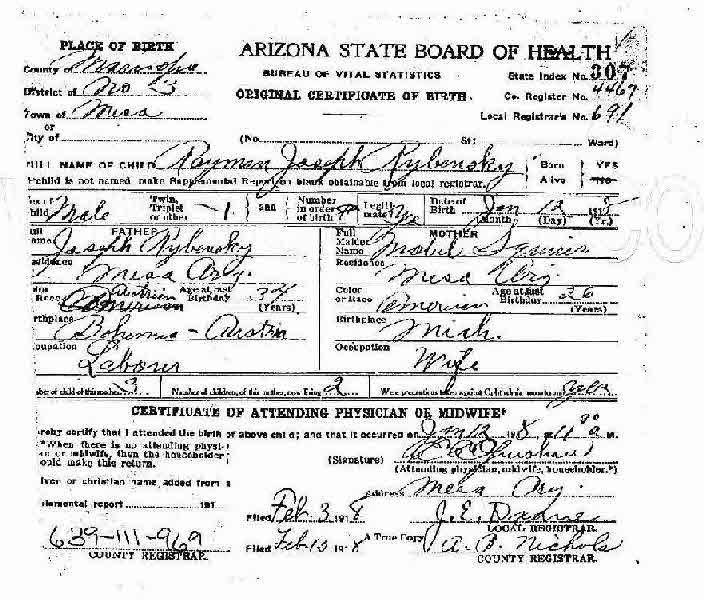 PLACE OF BIRTH
ARIZONA STATE BOARD OF HEALTH
County of Maricopa
BUREAU OF VITAL STATISTICS
State Index No. 307
District of No 3
ORIGINAL CERTIFICATE OF BIRTH.
Co. Register No. 4467
Town of Mesa
Local Registrar's No. 691
or
City of (No. St; Ward)
FULL NAME OF CHILD Raymon Joseph Rybensky Born YES
If child is not named, make Supplemental Report on blank obtainable from local registrar. Alive No
Sex of Child Male Twin, Triplet or other 1 and Number in order of birth Legitimate Yes Date of Birth Jan 12 191
(Month) (Day) (Yr.)
FATHER
Full Name Joseph Rybensky
MOTHER
Full Maiden Name Mabel
Residence Mesa Ary.
Residence Mesa Ariz
or Race American Austrian Age at last Birthday 37 (Years)
Color or Race American Age at last Birthday 36 (Years)
Birthplace Bohemia - Austria
Birthplace Mich.
Occupation Laborer
Occupation Wife
Number of child of this mother 3 Number of children, of this mother, now living 2 Were precautions taken against Ophthalmia neonatorum Yes
CERTIFICATE OF ATTENDING PHYSICIAN OR MIDWIFE*
I hereby certify that I attended the birth of above child; and that it occurred on Jan 12 1918, at 11 a M.
*When there is no attending physician or midwife, then the householder should make this return.
(Signature)
(Attending physician, midwife, householder.*)
Given or christian name added from a
Address Mesa Ary.
supplemental report 191
Filed Feb 3 1918 J. E.
LOCAL REGISTRAR.
639-111-969
A True Copy
COUNTY REGISTRAR.
Filed Feb 10 1918 A. B. Nichols
COUNTY REGISTRAR.